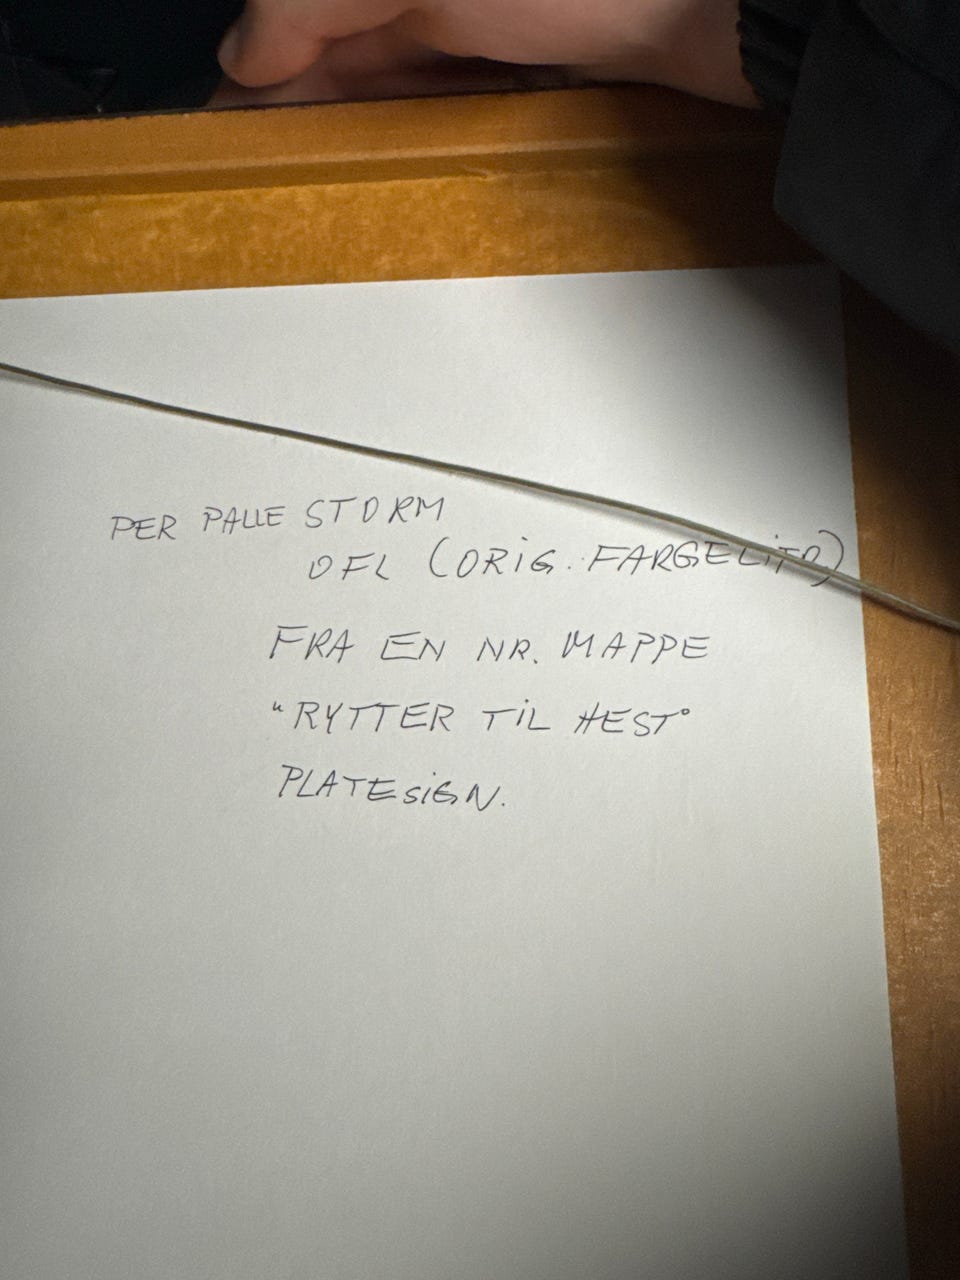 PER PALLE STORM
OFL (ORIG. FARGELITO)
FRA EN NR. MAPPE
"RYTTER TIL HEST"
PLATESIGN.